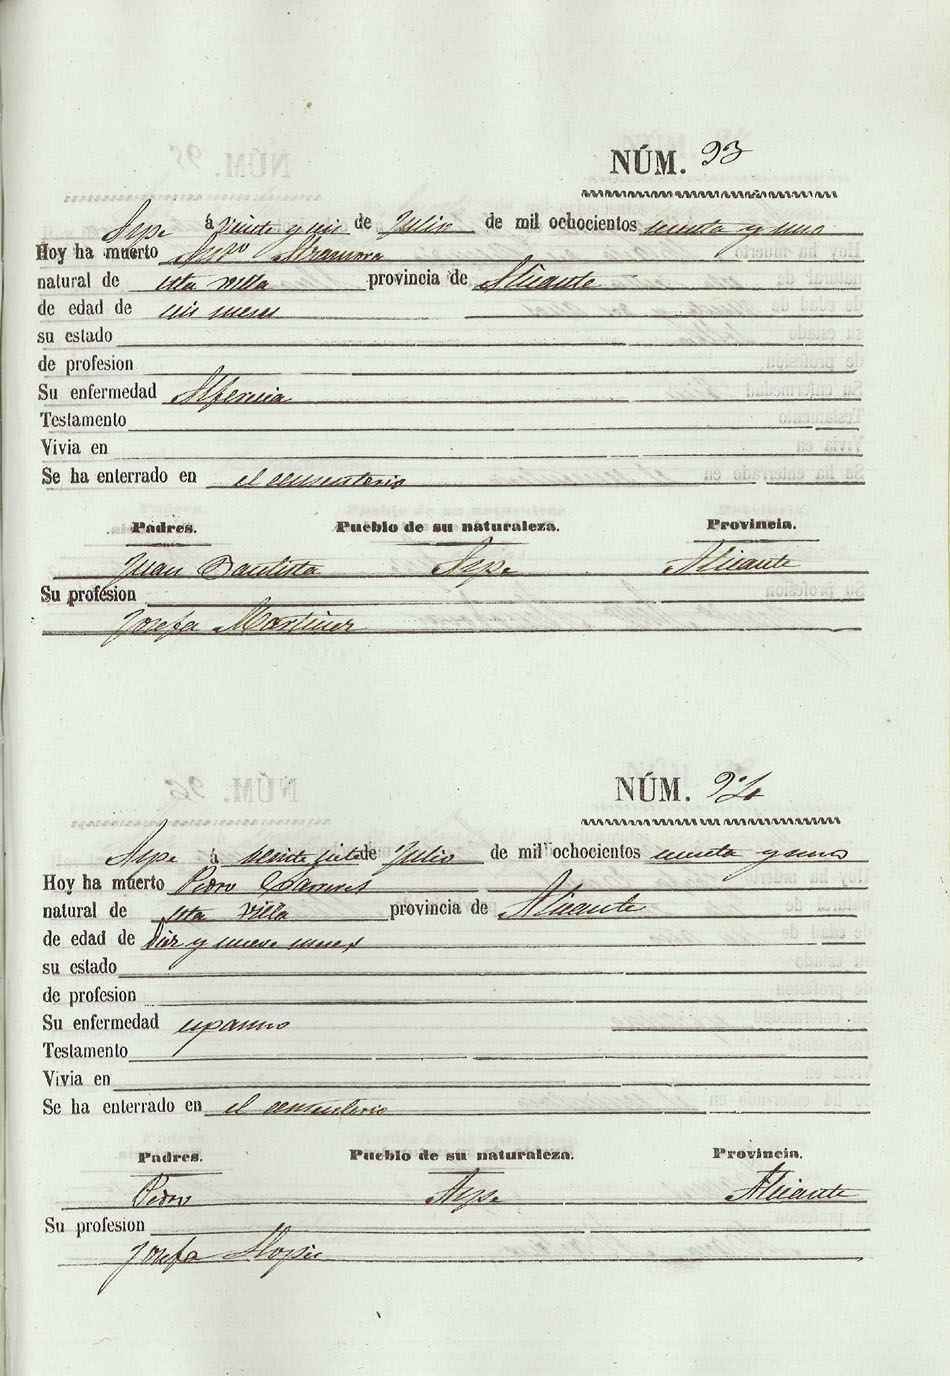 NÚM. 93
Aspe á veinte y seis de Julio de mil ochocientos sesenta y uno
Hoy ha muerto
natural de esta villa provincia de Alicante
de edad de seis meses
su estado
de profesion
Su enfermedad Alferecia
Testamento
Vivia en
Se ha enterrado en el cementerio
Padres. Pueblo de su naturaleza. Provincia.
Juan Bautista Aspe Alicante
Su profesion
Josefa Martinez
NÚM. 94
Aspe á veinte siete de Julio de mil ochocientos sesenta y uno
Hoy ha muerto Pedro
natural de esta villa provincia de Alicante
de edad de diez y nueve meses
su estado
de profesion
Su enfermedad espasmo
Testamento
Vivia en
Se ha enterrado en el cementerio
Padres. Pueblo de su naturaleza. Provincia.
Pedro Aspe Alicante
Su profesion
Josefa Llopis